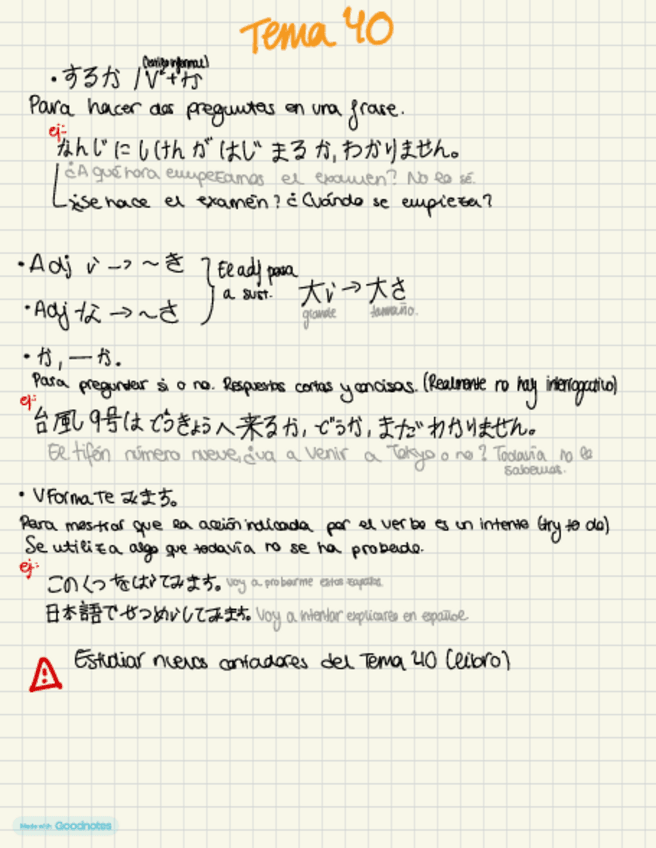 Tema 40
(Verbo informal)
• するか / V + か
Para hacer dos preguntas en una frase.
ej:
なんじに しけん が はじ まる か, わかりません。
¿A qué hora empezamos el examen? No lo sé.
¿Se hace el examen? ¿Cuándo se empieza?
• Adj い -> ~き
El adj pasa
a sust.
大い -> 大さ
grande
tamaño.
• Adj な -> ~さ
• か, ー か.
Para preguntar si o no. Respuestas cortas y concisas. (Realmente no hay interrogativo)
ej:
台風 9号は とうきょうへ 来るか, どうか, まだ わかりません。
El tifón número nueve, ¿va a venir a Tokyo o no? Todavía no lo
sabemos.
• V Forma Te みます。
Para mostrar que la acción indicada por el verbo es un intento (try to do)
Se utiliza algo que todavía no se ha probado.
ej:
このくつをはいてみます。 Voy a probarme estos zapatos.
日本語で せつめいしてみます。 Voy a intentar explicarlo en español
Estudiar nuevos contadores del Tema 40 (libro)
Made with Goodnotes